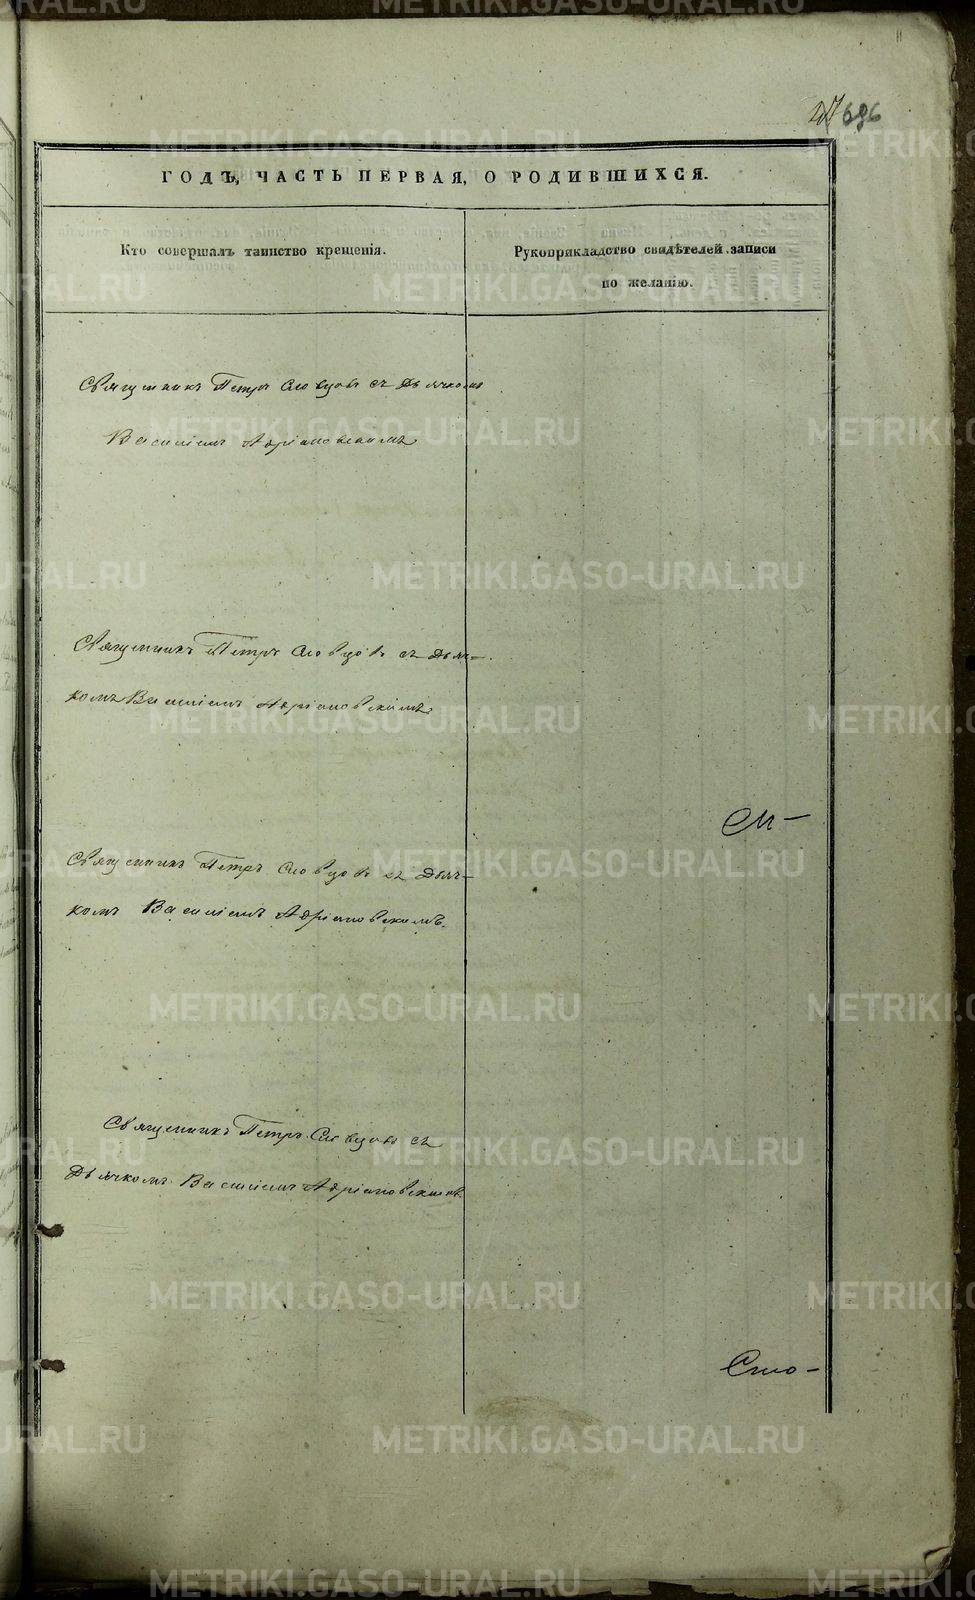 686
ГОДЪ, ЧАСТЬ ПЕРВАЯ, О РОДИВШИХСЯ.
Кто совершалъ таинство крещенія.
Рукоприкладство свидѣтелей записи
по желанію.
Священникъ Петръ Словцовъ съ Дьячкомъ
Василіемъ Адріановскимъ
Священникъ Петръ Словцовъ съ Дьяч-
комъ Василіемъ Адріановскимъ.
Священникъ Петръ Словцовъ съ Дьяч-
комъ Василіемъ Адріановскимъ.
Священникъ Петръ Словцовъ съ
Дьячкомъ Василіемъ Адріановскимъ
METRIKI.GASO-URAL.RU